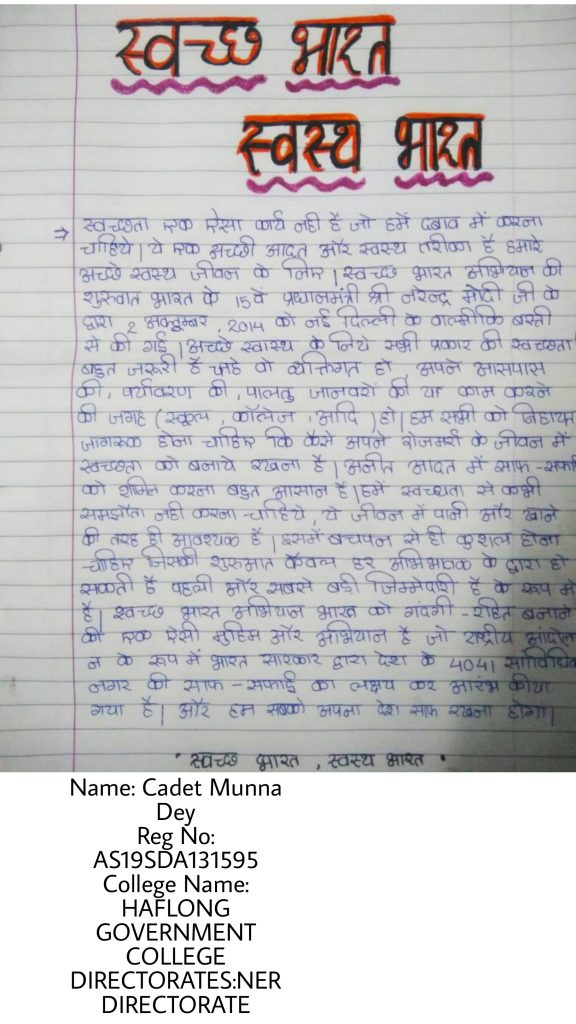 स्वच्छ भारत
स्वस्थ भारत
⇒ स्वच्छता एक ऐसा कार्य नही है जो हमें दबाव में करना
चाहिये। ये एक अच्छी आदत और स्वस्थ तरीका है हमारे
अच्छे स्वस्थ जीवन के लिए। स्वच्छ भारत अभियान की
शुरुवात भारत के 15वें प्रधानमंत्री श्री नरेन्द्र मोदी जी के
द्वारा 2 अक्टूम्बर, 2014 को नई दिल्ली के वाल्मीकि बस्ती
से की गई। अच्छे स्वास्थ के लिये सभी प्रकार की स्वच्छता
बहुत जरूरी है चाहे वो व्यक्तिगत हो, अपने आसपास
की, पर्यावरण की, पालतु जानवरों की या काम करने
की जगह (स्कूल, कॉलेज, आदि) हो। हम सभी को निहायत
जागरूक होना चाहिए कि कैसे अपने रोजमर्रा के जीवन में
स्वच्छता को बनाये रखना है। अपनी आदत में साफ-सफाई
को शामिल करना बहुत आसान है। हमें स्वच्छता से कभी
समझौता नही करना चाहिये, ये जीवन में पानी और खाने
की तरह ही आवश्यक है। इसमें बचपन से ही कुशल होना
चाहिए जिसकी शुरुआत केवल हर अभिभावक के द्वारा हो
सकती है पहली और सबसे बड़ी जिम्मेदारी है के रूप में
है। स्वच्छ भारत अभियान भारत को गंदगी-रहित बनाने
की एक ऐसी मुहिम और अभियान है जो राष्ट्रीय आंदोल
न के रूप में भारत सारकार द्वारा देश के 4041 सांविधिक
नगर की साफ-सफाई का लक्षय कर आरंभ कीया
गया है। और हम सबको अपना देश साफ रखना होगा।
" स्वच्छ भारत, स्वस्थ भारत "
Name: Cadet Munna
Dey
Reg No:
AS19SDA131595
College Name:
HAFLONG
GOVERNMENT
COLLEGE
DIRECTORATES:NER
DIRECTORATE